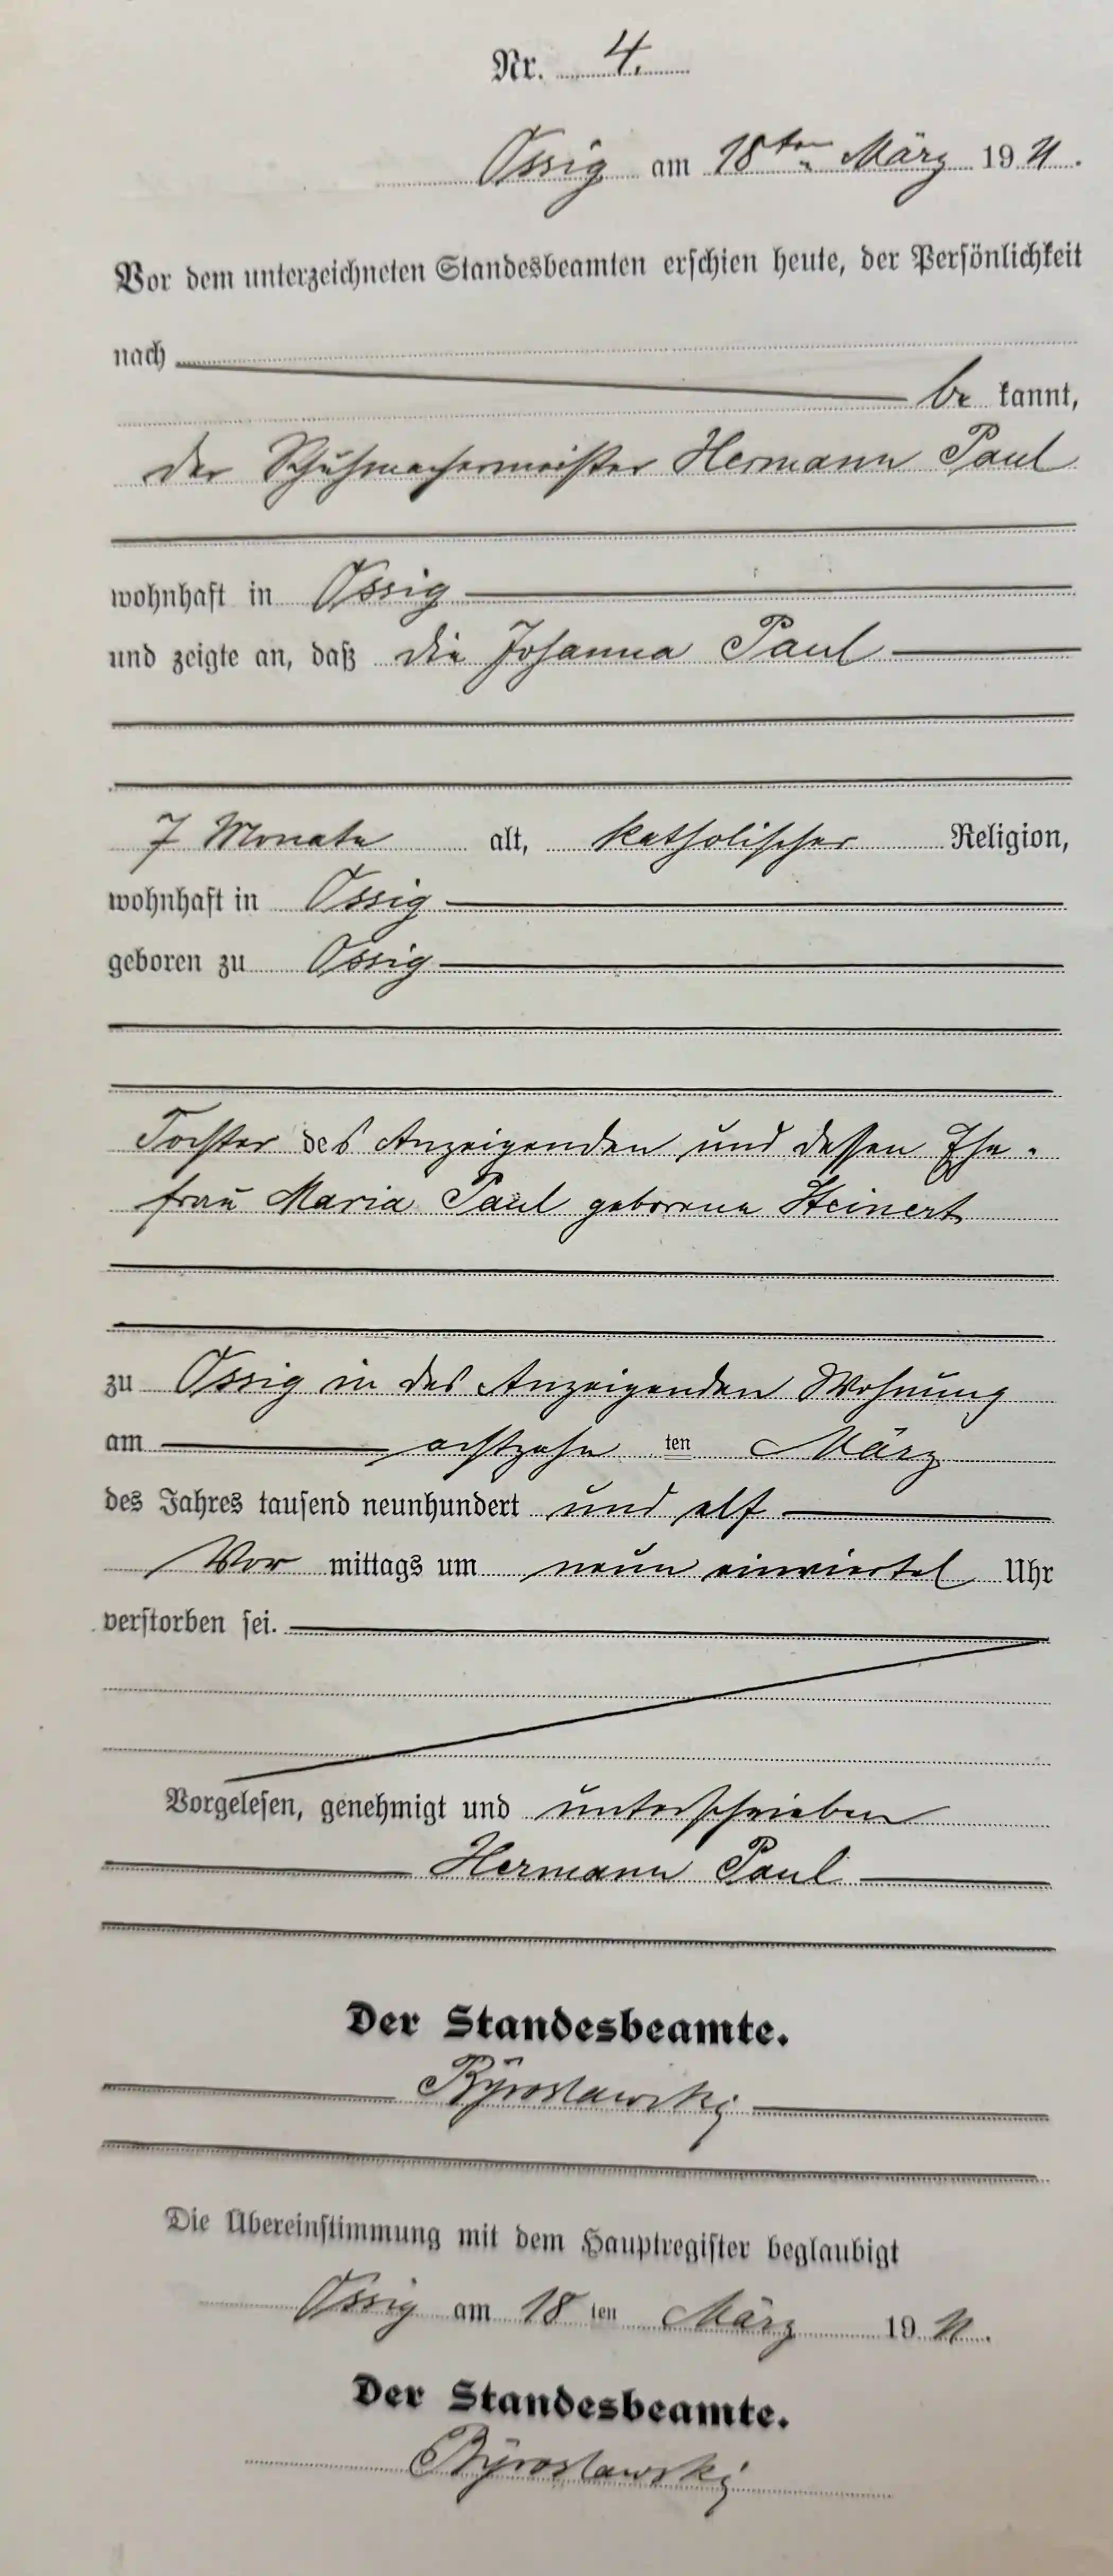 Nr. 4.
Ossig am 18ten März 1911.
Vor dem unterzeichneten Standesbeamten erschien heute, der Persönlichkeit
nach
be kannt,
der Schuhmachermeister Hermann Paul
wohnhaft in Ossig
und zeigte an, daß die Johanna Paul
7 Monate alt, katholischer Religion,
wohnhaft in Ossig
geboren zu Ossig
Tochter des Anzeigenden und dessen Ehe-
frau Maria Paul geborene Steinert
zu Ossig in des Anzeigenden Wohnung
am achtzehn ten März
des Jahres tausend neunhundert und elf
Vor mittags um neun einviertel Uhr
verstorben sei.
Vorgelesen, genehmigt und unterschrieben
Hermann Paul
Der Standesbeamte.
Die Übereinstimmung mit dem Hauptregister beglaubigt
Ossig am 18 ten März 1911.
Der Standesbeamte.